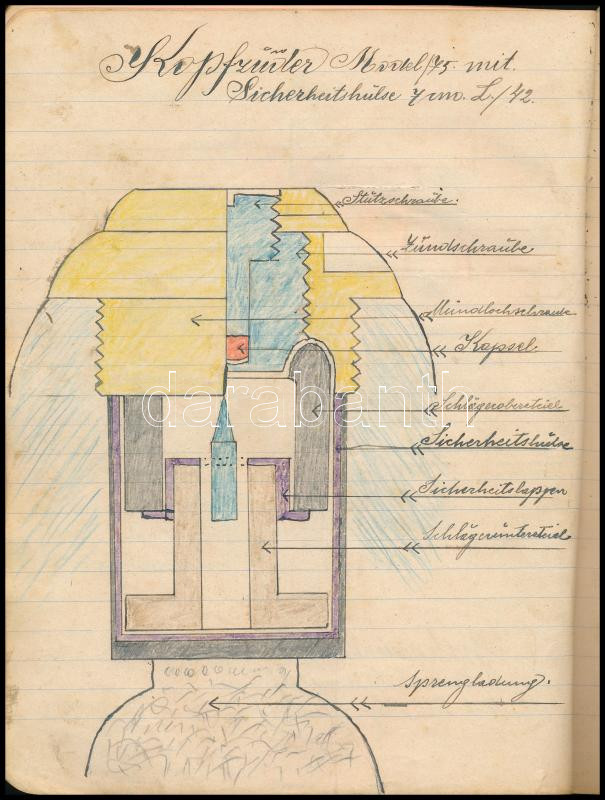 Kopfzüder Model/75. mit
Sicherheitshülse 7 cm. L./42.
Stützschraube.
Zündschraube
Mündlochschraube
Kapsel.
Schlägeroberteiel
Sicherheitshülse
Sicherheitslappen
Schlägerünterteiel
Sprengladung.
darabanth